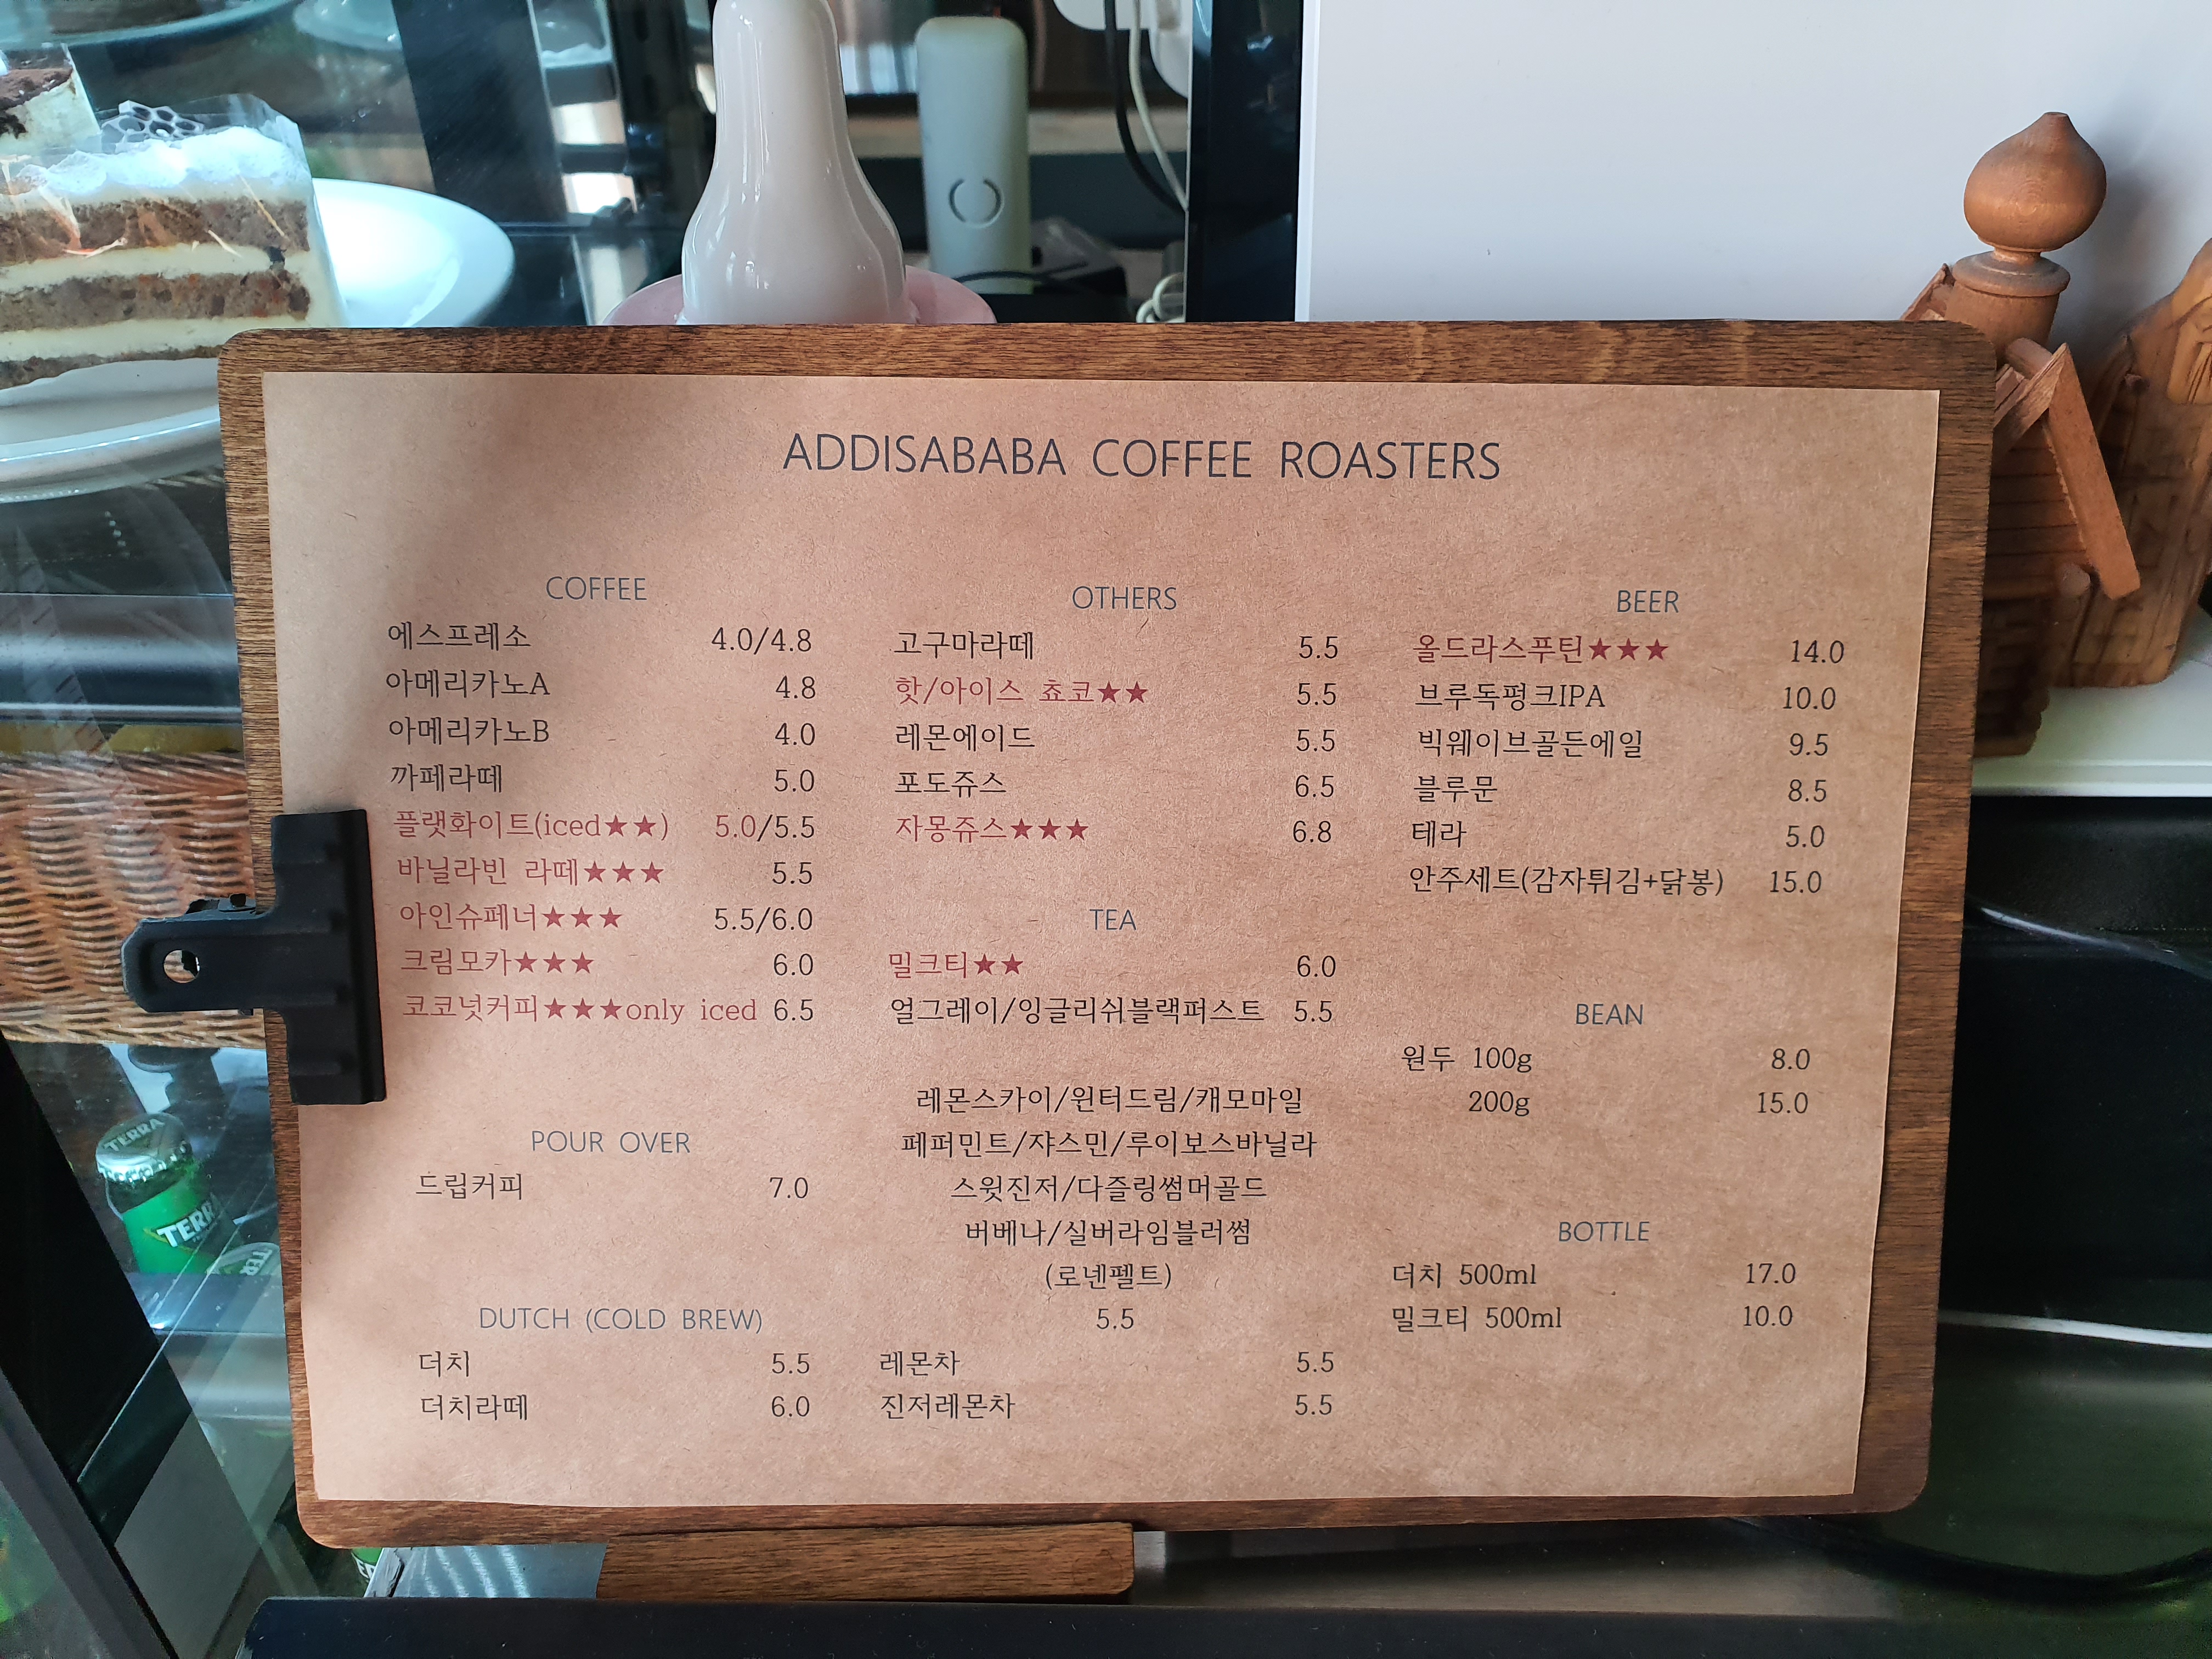 ADDISABABA COFFEE ROASTERS
COFFEE
에스프레소 4.0/4.8
아메리카노A 4.8
아메리카노B 4.0
까페라떼 5.0
플랫화이트(iced★★) 5.0/5.5
바닐라빈 라떼★★★ 5.5
아인슈페너★★★ 5.5/6.0
크림모카★★★ 6.0
코코넛커피★★★only iced 6.5
POUR OVER
드립커피 7.0
DUTCH (COLD BREW)
더치 5.5
더치라떼 6.0
OTHERS
고구마라떼 5.5
핫/아이스 쵸코★★ 5.5
레몬에이드 5.5
포도쥬스 6.5
자몽쥬스★★★ 6.8
TEA
밀크티★★ 6.0
얼그레이/잉글리쉬블랙퍼스트 5.5
레몬스카이/윈터드림/캐모마일
페퍼민트/쟈스민/루이보스바닐라
스윗진저/다즐링썸머골드
버베나/실버라임블러썸
(로넨펠트)
5.5
레몬차 5.5
진저레몬차 5.5
BEER
올드라스푸틴★★★ 14.0
브루독펑크IPA 10.0
빅웨이브골든에일 9.5
블루문 8.5
테라 5.0
안주세트(감자튀김+닭봉) 15.0
BEAN
원두 100g 8.0
200g 15.0
BOTTLE
더치 500ml 17.0
밀크티 500ml 10.0
TERRA
TERRA